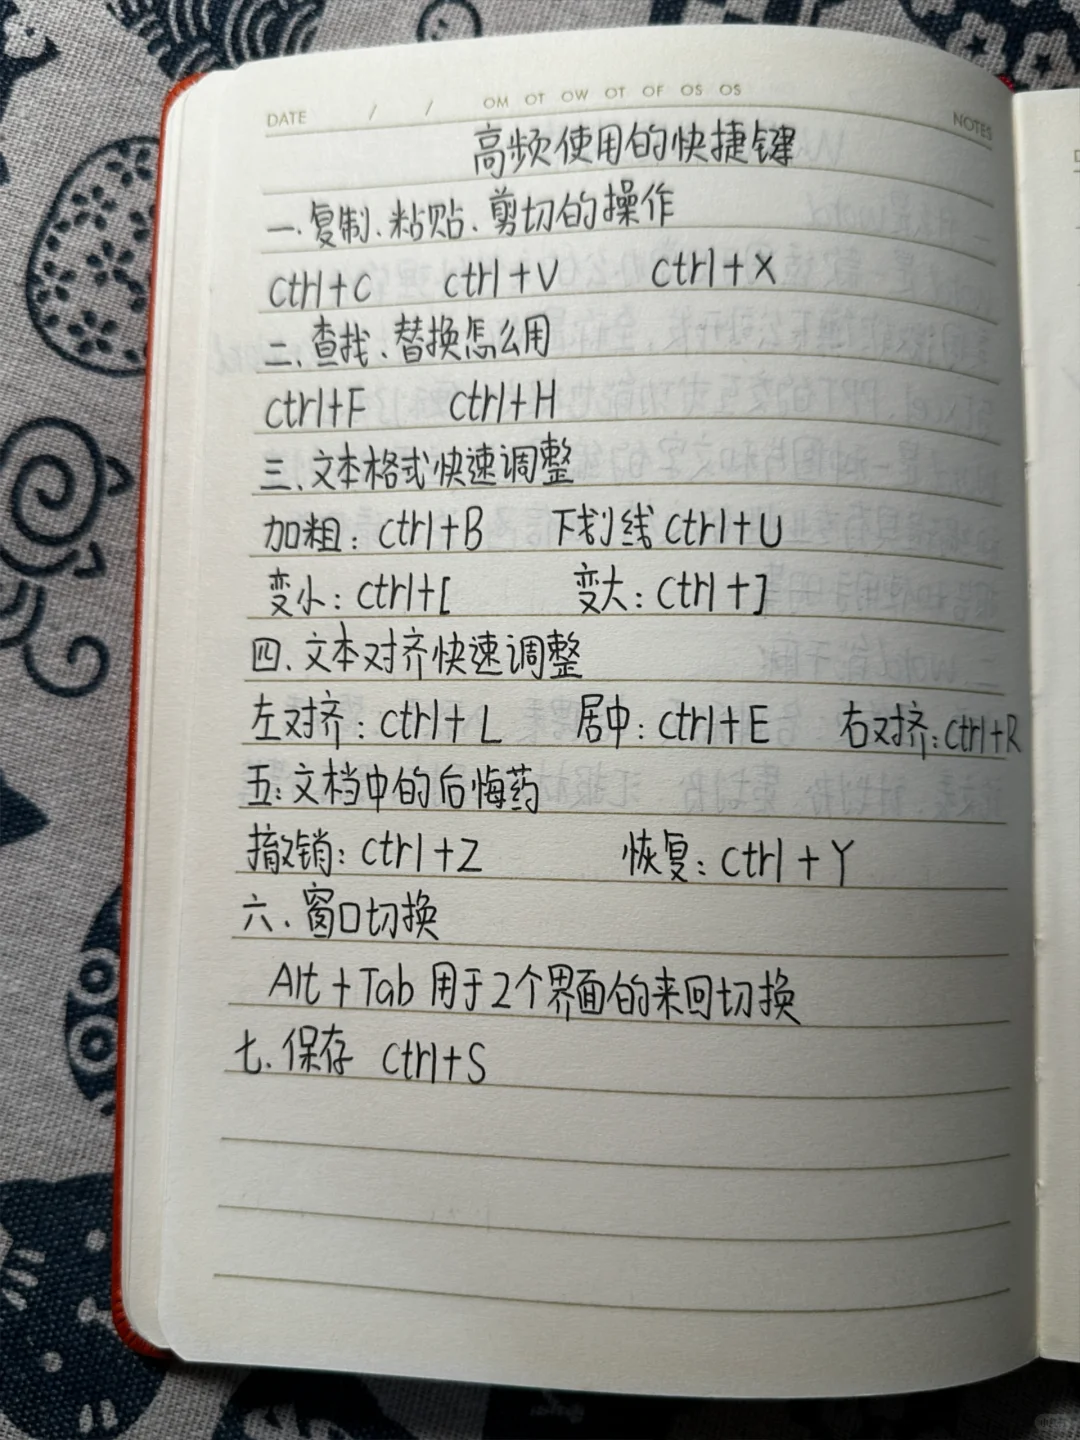 DATE / / OM OT OW OT OF OS OS
NOTES
高频使用的快捷键
一.复制、粘贴、剪切的操作
ctrl+C ctrl+V ctrl+X
二、查找、替换怎么用
ctrl+F ctrl+H
三、文本格式快速调整
加粗:ctrl+B 下划线 ctrl+U
变小:ctrl+[ 变大:ctrl+]
四、文本对齐快速调整
左对齐:ctrl+L 居中:ctrl+E 右对挤:ctrl+R
五:文档中的后悔药
撤销:ctrl+Z 恢复:ctrl+Y
六.窗口切换
Alt+Tab 用于2个界面的来回切换
七.保存 ctrl+S